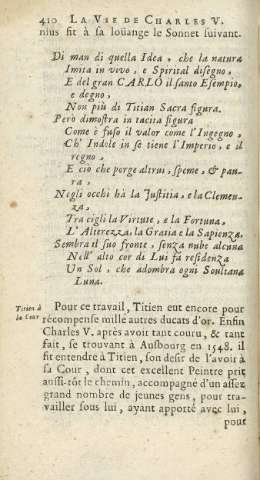 410 LA VIE DE CHARLES V.
nius fit à sa loüange le Sonnet suivant.
Di man di quella Idea, che la natura
Imita in vivo, e Spirital disegno,
E del gran CARLO il santo Esempio,
e degno,
Non più di Titian Sacra figura.
Però dimostra in tacita figura
Come è fuso il valor come l'Ingegno,
Ch' Indole in se tiene l'Imperio, e il
regno,
E cio che porge altrui, speme, & pau-
ra,
Negli occhi hà la Justitia, e la Clemen-
za,
Tra cigli la Virtute, e la Fortuna,
L' Alterezza, la Gratia e la Sapienza.
Sembra il suo fronte, senza nube alcuna
Nell' alto cor di Lui fà residenza
Un Sol, che adombra ogni Soultana
Luna.
Titien à
la Cour
Pour ce travail, Titien eut encore pour
récompense mille autres ducats d'or. Enfin
Charles V. après avoir tant couru, & tant
fait, se trouvant à Ausbourg en 1548. il
fit entendre à Titien, son desir de l'avoir à
sa Cour, dont cet excellent Peintre prit
aussi-tôt le chemin, accompagné d'un assez
grand nombre de jeunes gens, pour tra-
vailler sous lui, ayant apporté avec lui,
pour